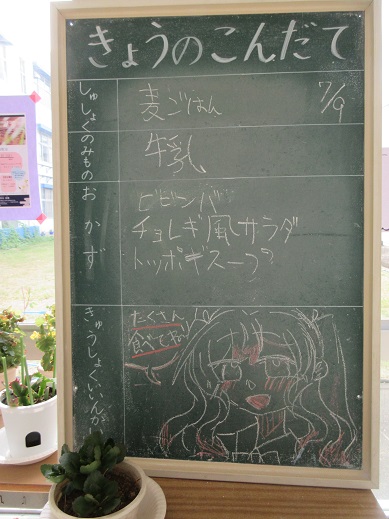 きょうのこんだて
しゅしょく
麦ごはん
7/9
のみもの
牛乳
おかず
ビビンバ
チョレギ風サラダ
トッポギスープ
きゅうしょくいいんかい
たくさん
食べてね!